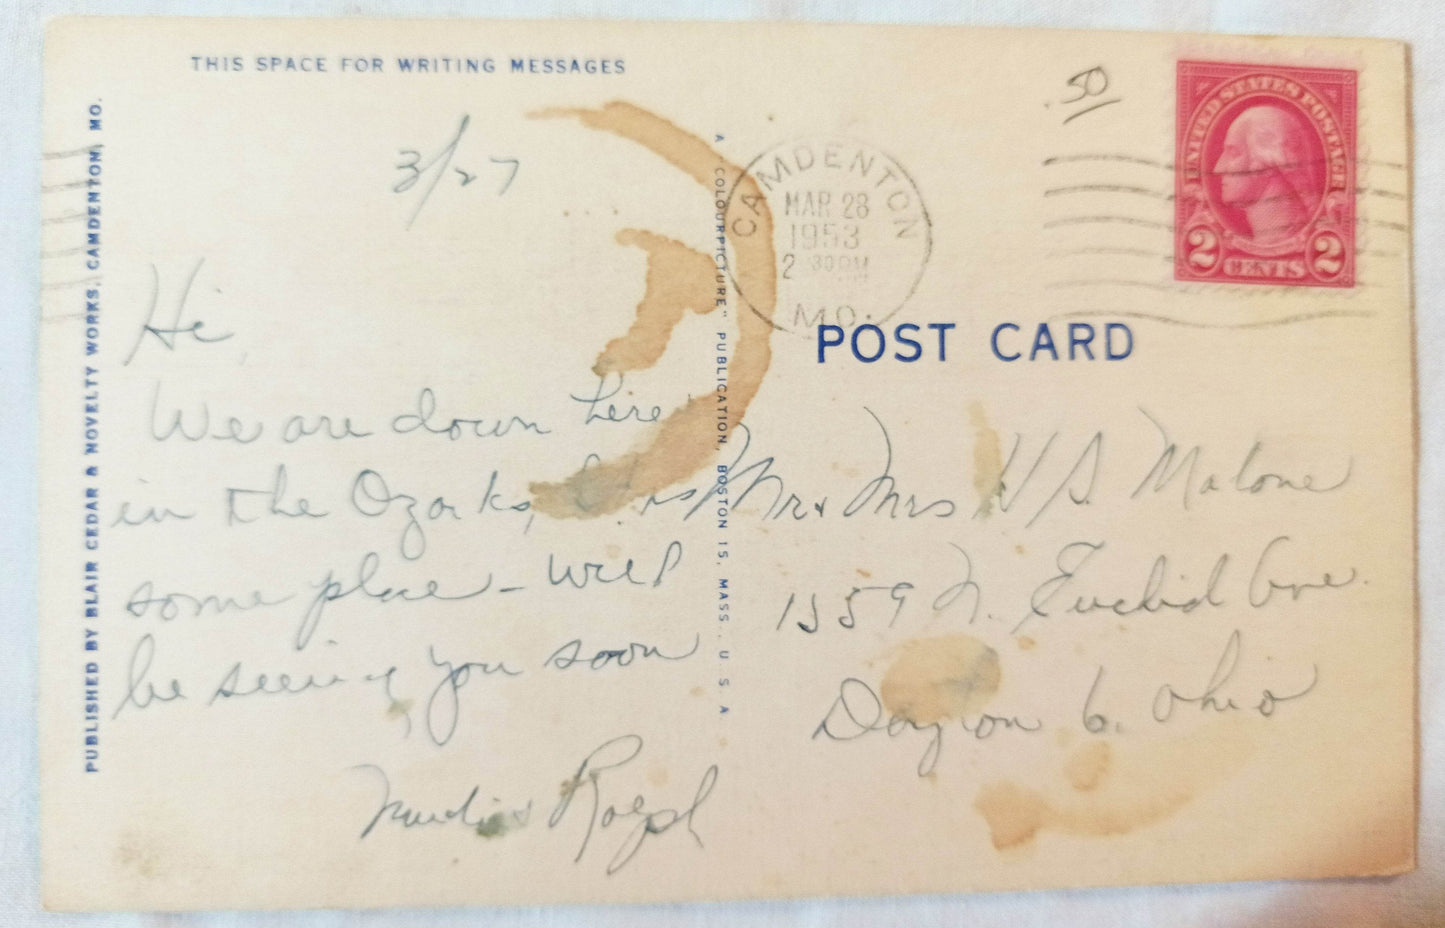 THIS SPACE FOR WRITING MESSAGES
3/27
Hi,
We are down here
in the Ozarks,
some place - will
be seeing you soon
Ralph
PUBLISHED BY BLAIR CEDAR & NOVELTY WORKS, CAMDEMTON, MO.
A "COLOURPICTURE" PUBLICATION, BOSTON 15, MASS., U.S.A
CAMDENTON
MAR 28
1953
2 30 PM
MO.
.50
UNITED STATES POSTAGE
2 CENTS 2
POST CARD
Mr & Mrs V S. Malone
1559 N. Euclid Ave.
Dayton 6. Ohio